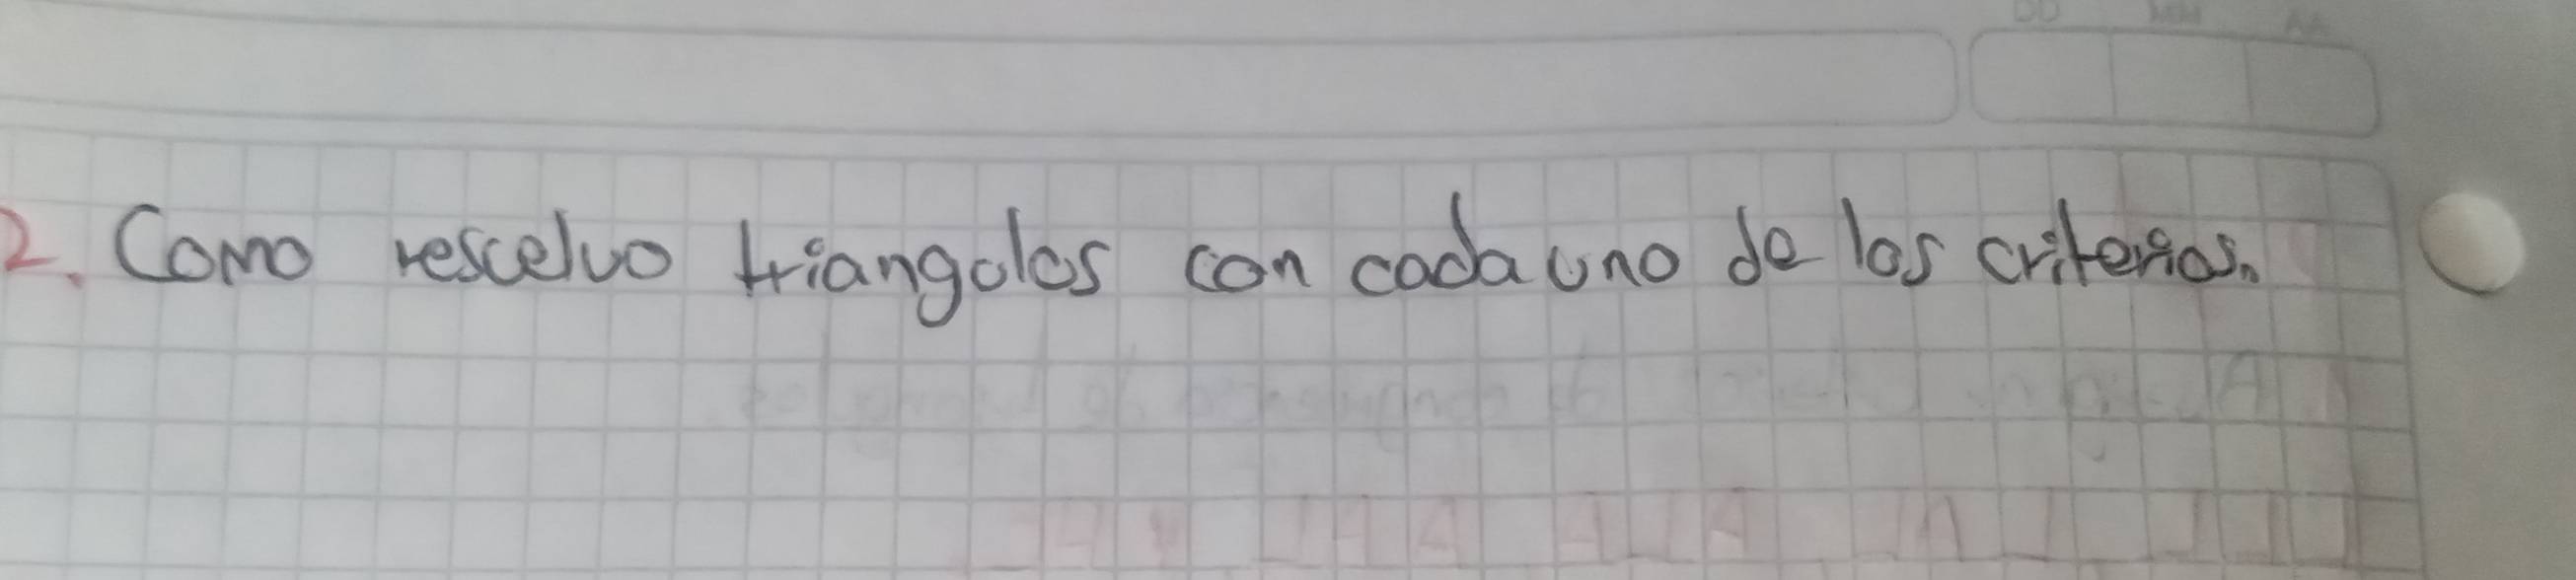 DD MM AA
2. Como rescelvo triangulos con cada uno de los criterios.